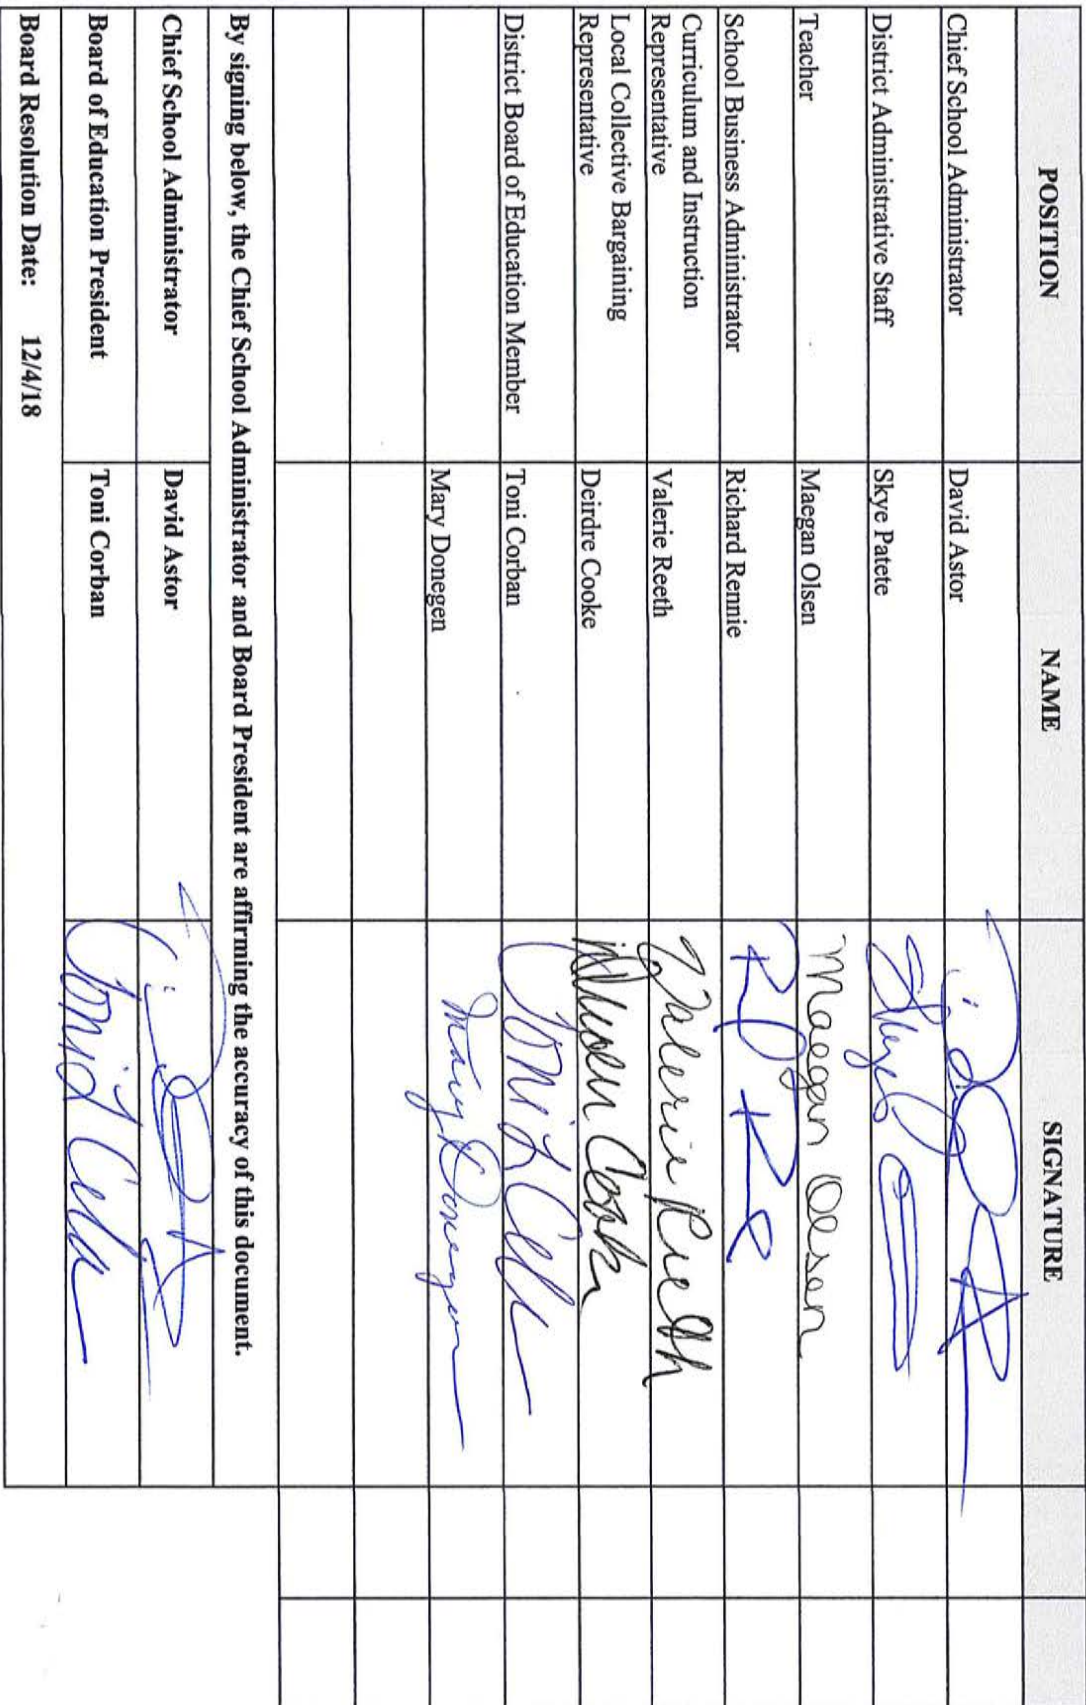 POSITION NAME SIGNATURE
Chief School Administrator David Astor
District Administrative Staff Skye Patete
Teacher Maegan Olsen Maegan Olsen
School Business Administrator Richard Rennie
Curriculum and Instruction
Representative Valerie Reeth Valerie Reeth
Local Collective Bargaining
Representative Deirdre Cooke Cooke
District Board of Education Member Toni Corban Toni
Mary Donegen Mary Donegen
By signing below, the Chief School Administrator and Board President are affirming the accuracy of this document.
Chief School Administrator David Astor
Board of Education President Toni Corban Toni
Board Resolution Date: 12/4/18